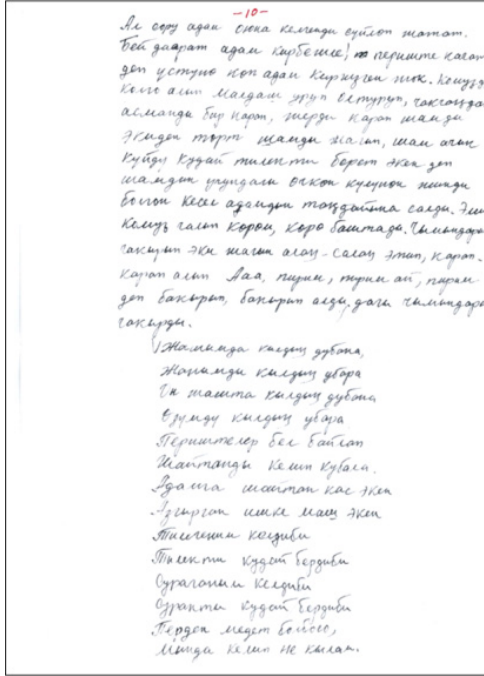 -10-
Ал оору адам оюна келгенди сүйлөп жатат.
Бей даарат адам кирбейт, периште качат
деп үстүнө көп адам киргизген жок. Комузду
колго алып малдаш уруп олтуруп,
асманды бир карап, жерди карап шамды
экиден төрт шамды жагып, шам
күйдү кудай тилекти берет экен деп
шамдын учундагы өчкөн күлүнөн жинди
болгон кесел адамдын таңдайына салды. Эми
комуз чалып кирди, баштады. Чымындарын
чакырып эки жагын алаң-салаң этип, карап-
карап алып Ааа, пирим, пирим ай, пирим
деп бакырып, бакырып алды, дагы чымындарын
чакырды.
Жанымда кылдың дубана,
Жанымды кылдың убара
Он жашта кылдың дубана
Өзүмдү кылдың убара
Периштелер бел байлап
Шайтанды келип кубала.
Адамга шайтан кас экен
Азгырган ишке маш экен
Тилегеним келдиби
Тилекти кудай бердиби
Сураганым келдиби
кудай бердиби
Пирден медет болсо,
Мында келип не кылам.